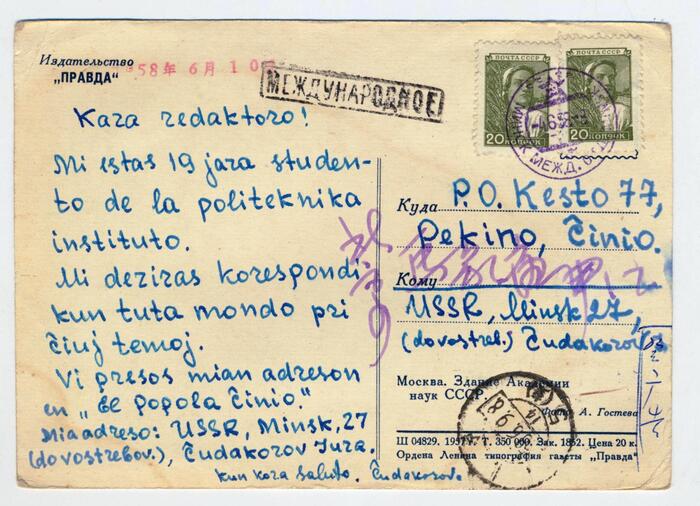 Издательство
„ПРАВДА“
58年 6月 10
МЕЖДУНАРОДНОЕ
ПОЧТА СССР
20 КОПЕЕК
ПОЧТА СССР
20 КОПЕЕК
МИНСК МЕЖД.
Kara redaktoro!
Mi estas 19 jara studen-
to de la politeknika
instituto.
Mi deziras korespondi
kun tuta mondo pri
ĉiuj temoj.
Vi presos mian adreson
en „El Popola Ĉinio.“
Mia adreso: USSR, Minsk, 27
(dovostrebov.), Ĉudakorov Jura.
kun kora saluto. Ĉudakorov.
Куда
P.O. Kesto 77,
Pekino, Ĉinio.
Кому
USSR, Minsk 27,
(dovostreb.) Ĉudakorov
Москва. Здание Академии
наук СССР
Фото А. Гостева
Ш 04829. 1957 г. Т. 350 000. Зак. 1852. Цена 20 к.
Ордена Ленина типография газеты „Правда“
北京